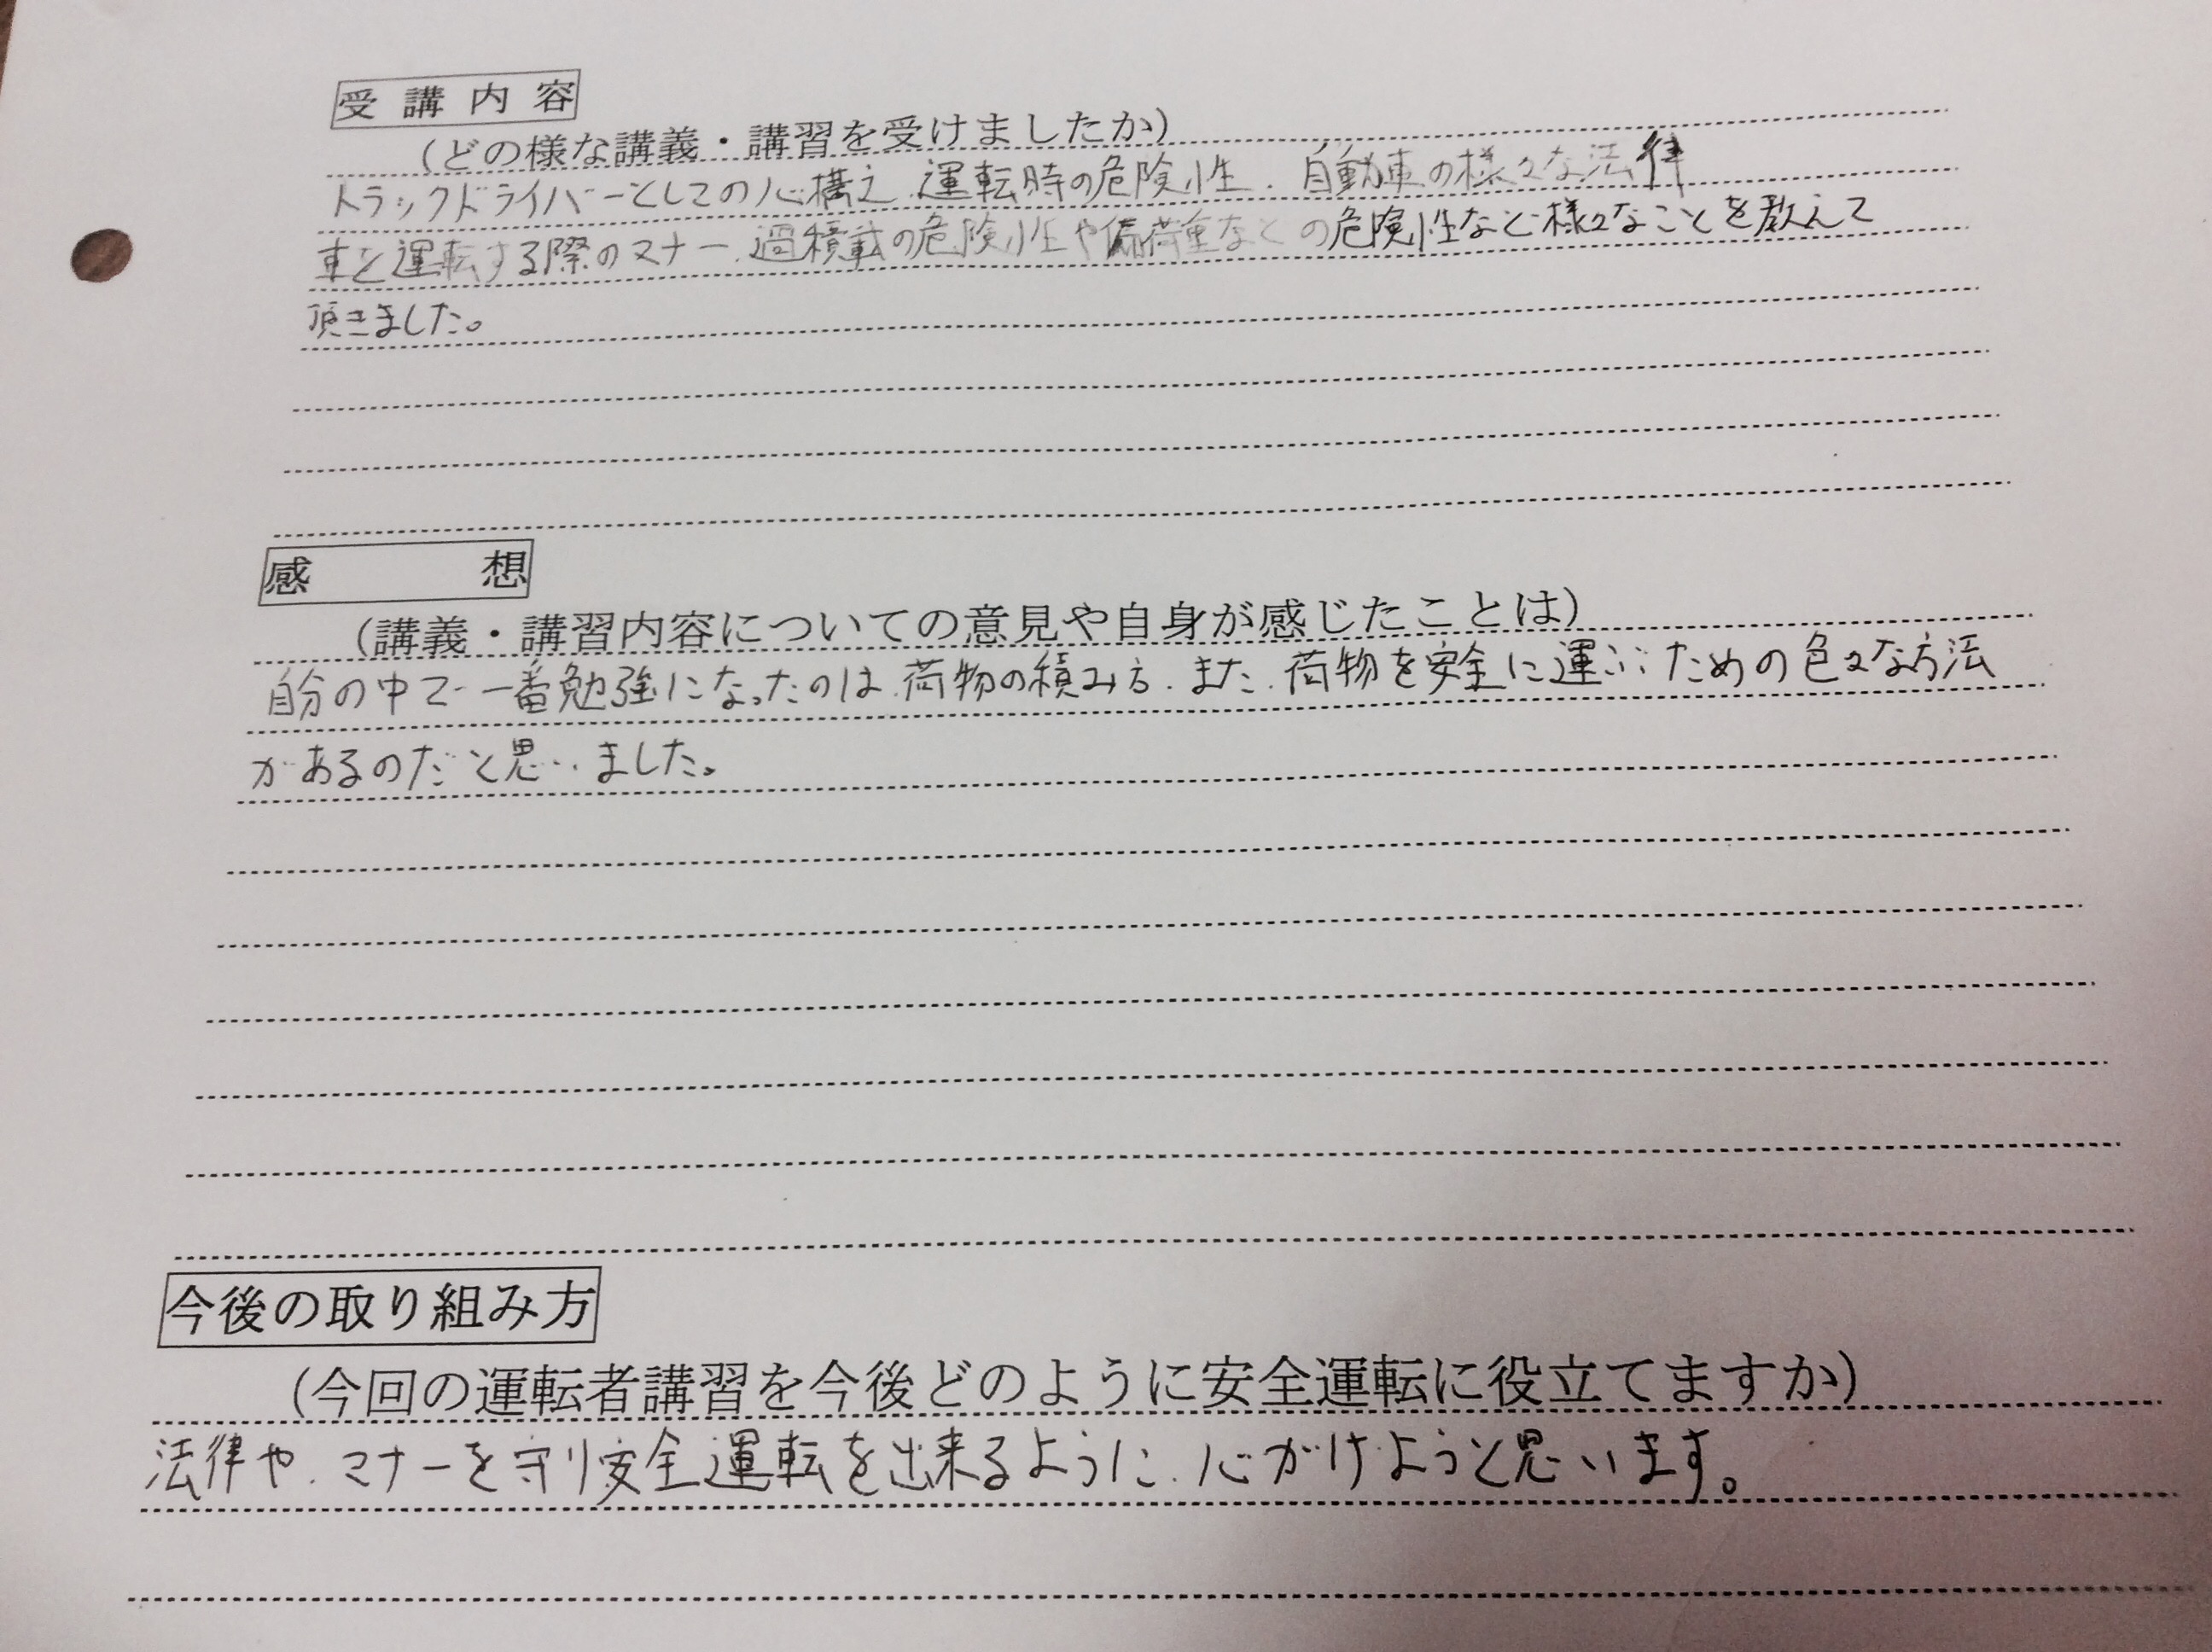 受講内容
（どの様な講義・講習を受けましたか）
トラックドライバーとしての心構え、運転時の危険性、自動車の様々な法律
車を運転する際のマナー、過積載の危険性や偏荷重などの危険性など様々なことを教えて
頂きました。
感想
（講義・講習内容についての意見や自身が感じたことは）
自分の中で一番勉強になったのは、荷物の積み方、また、荷物を安全に運ぶための色々な方法
があるのだと思いました。
今後の取り組み方
（今回の運転者講習を今後どのように安全運転に役立てますか）
法律や、マナーを守り安全運転を出来るように、心がけようと思います。